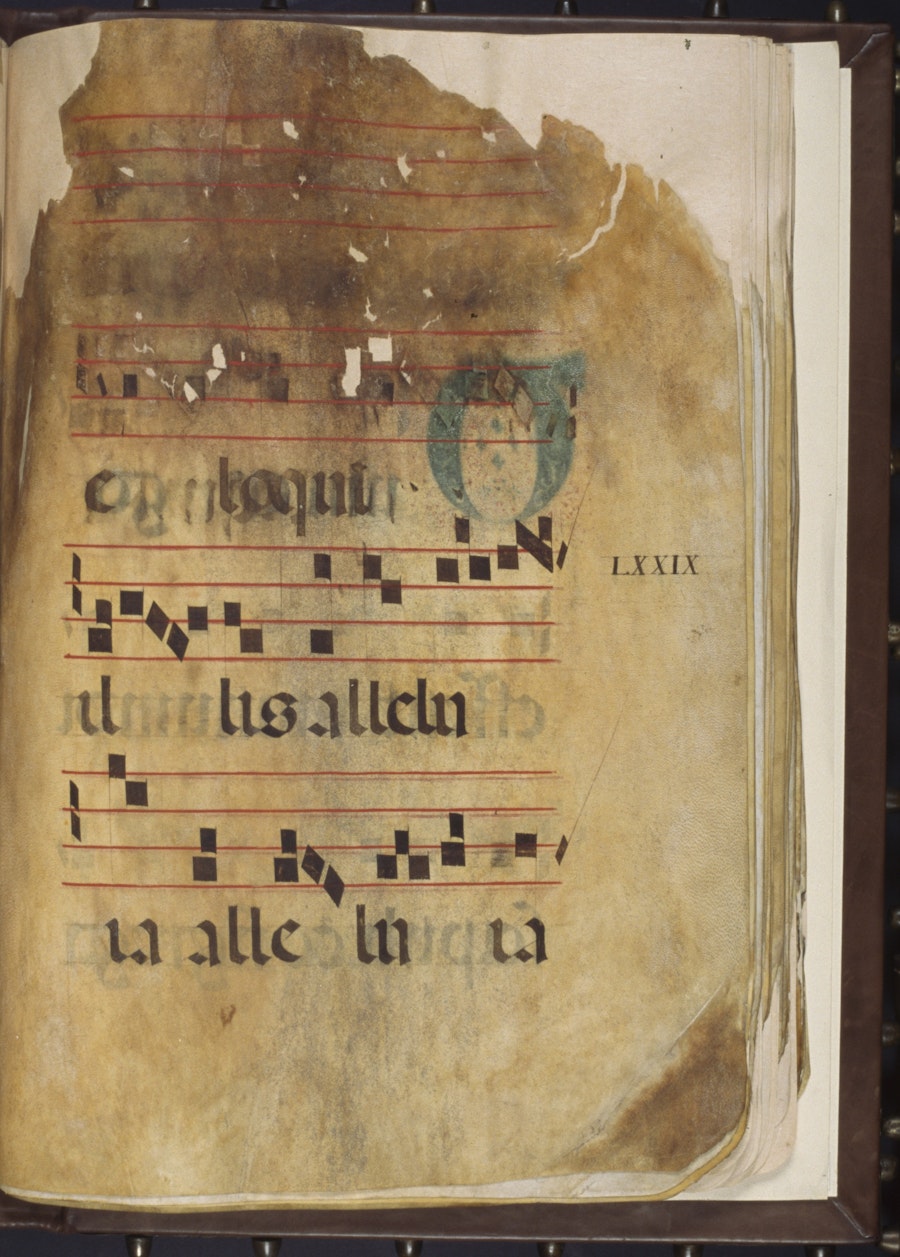 e loqui
LXXIX
il lis allelu
ia alle lu ia